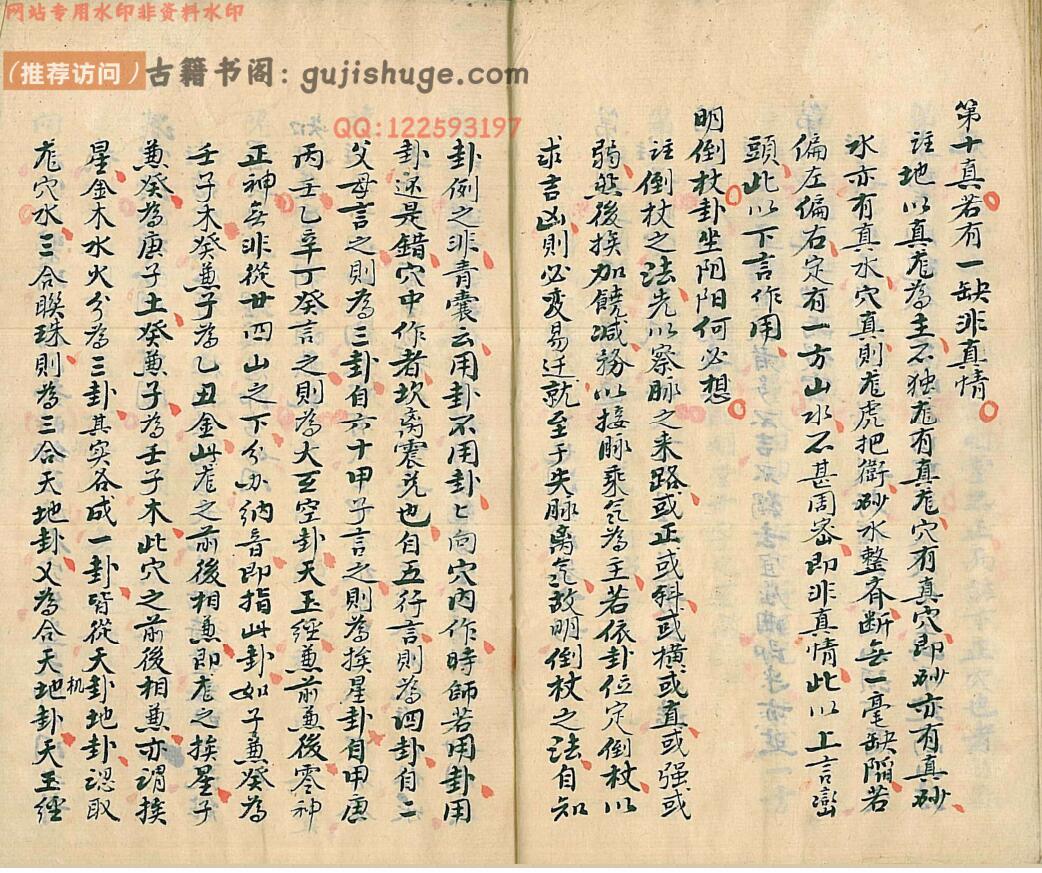 网站专用水印非资料水印
（推荐访问）古籍书阁：gujishuge.com
QQ:122593197
第十真若有一缺非真情
註地以真龙為主不独龙有真龙穴有真穴即砂亦有真砂
水亦有真水穴真則龙虎把衛砂水整斉断無一毫缺陷若
偏左偏右定有一方山水不甚周宻即非真情此以上言巒
頭此以下言作用
明倒杖卦坐阴阳何必想
註倒杖之法先以察脉之来路或正或斜或横或直或强或
弱然後挨加饒减務以接脉乘气為主若依卦位定倒杖以
求吉凶則必变易迁就至于失脉离气故明倒杖之法自知
卦例之非青囊云用卦不用卦卜向穴内作時師若用卦用
卦还是錯穴中作者坎离震兑也自五行言則為四卦自二
父母言之則為三卦自六十甲子言之則為挨星卦自甲庚
丙壬乙辛丁癸言之則為大玄空卦天玉經兼前兼後零神
正神無非從廿四山之下分办納音即指此卦如子兼癸為
壬子木癸兼子為乙丑金此龙之前後相兼即龙之挨星子
兼癸為庚子土癸兼子為壬子木此穴之前後相兼亦謂挨
星金木水火分為三卦其实各成一卦皆從天机卦地卦認取
龙穴水三合聯珠則為三合天地卦又為合天地卦天玉經